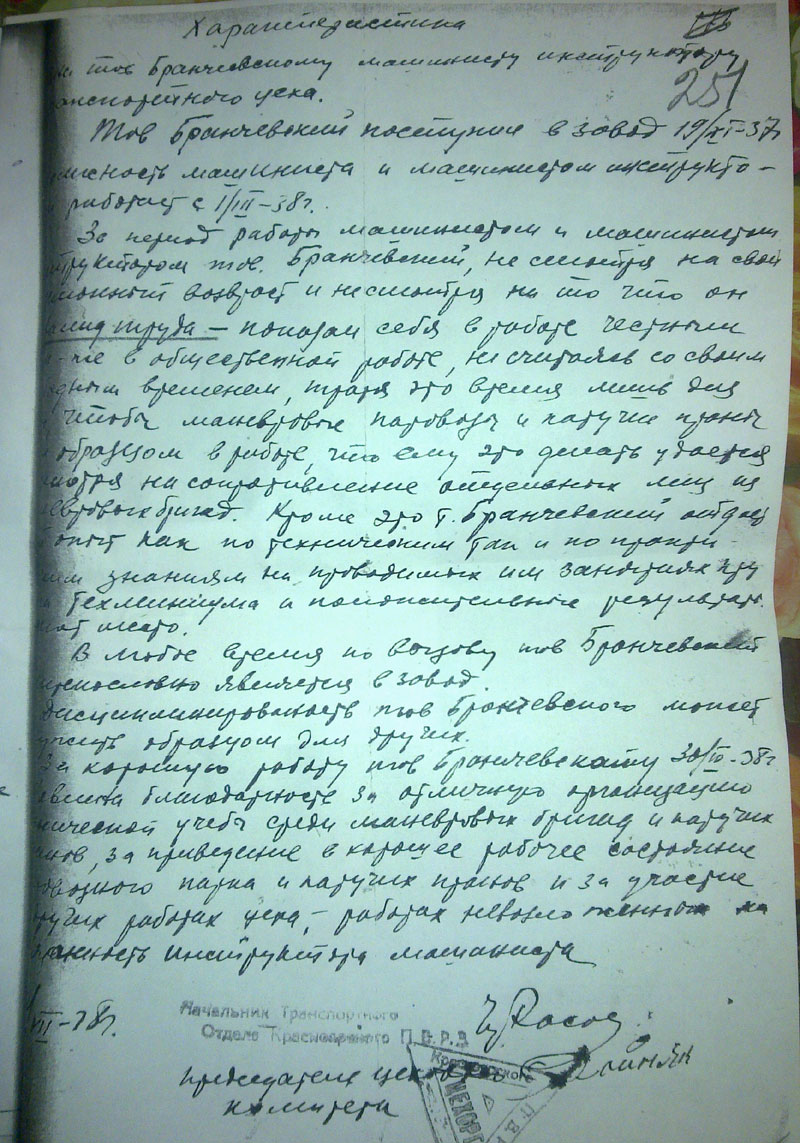 Характеристика
251
тов Бранчевскому машинисту инструктору
цеха.
Тов Бранчевский поступил в завод 19/XI-37г
машиниста и машинистом инструкто-
работает с 1/III-38г.
За период работы машинистом и машинистом
тов. Бранчевский, не смотря на свой
возраст и несмотря на то что он
труда – показал себя в работе честным
в общественной работе, не считаясь со своим
временем, тратя это время лишь для
чтобы маневровые паровозы и паручие краны
образцом в работе, что ему это делать удается
на сопротивление отдельных лиц из
бригад. Кроме это т. Бранчевский отдает
опыт как по техническим так и по практи-
знаниям на проводимых им занятиях
Техминимума и положительные результаты
место.
В любое время по вызову тов Бранчевский
является в завод.
Дисциплинированность тов Бранчевского может
образцом для других.
За хорошую работу тов Бранчевскому 30/IV-38г
благодарность за отличную организацию
учебы среди маневровых бригад и паручих
за приведение в хорошее рабочее состояние
парка и паручих кранов и за участие
работах цеха, – работах невозложенных на
инструктора машиниста
VII-38г.
Начальник Транспортного
Отдела Красноярского П.В.Р.З
председатель
комитета